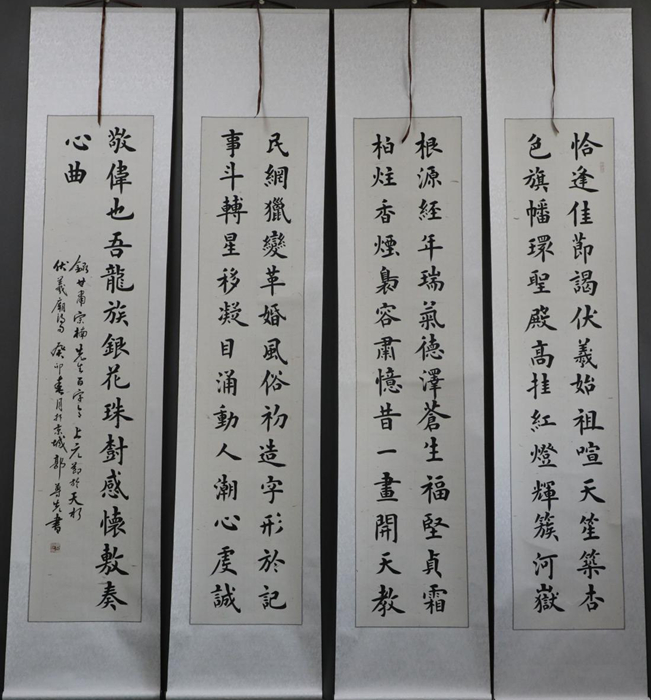 恰逢佳節謁伏義始祖喧天笙築杏
色旗幡環聖殿高挂紅燈輝簇河嶽
根源経年瑞氣德澤蒼生福堅貞霜
柏炷香煙裊容肅憶昔一畫開天教
民網獵變革婚風俗初造字形於記
事斗轉星移凝目涌動人潮心虔誠
敬偉也吾龍族銀花珠樹感懷敷奏
心曲
錄甘肅宗楠先生百字令上元節於天水
伏羲廟 癸卯春月於京城郭尊先書